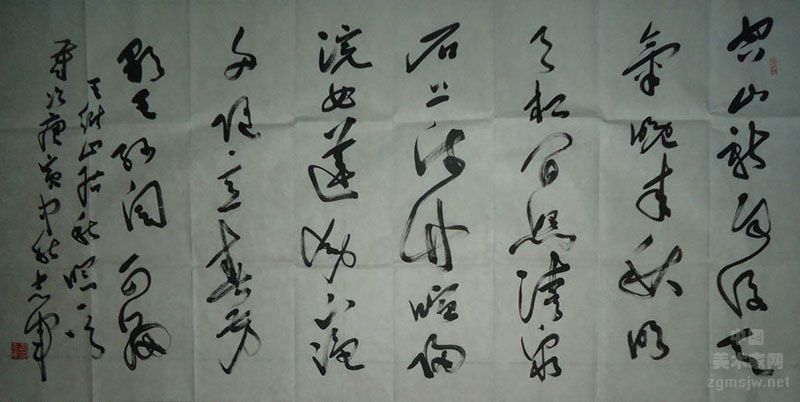 空山新雨後天
氣晚来秋明
月松间照清泉
石上流竹喧歸
浣女蓮動下漁
舟随意春芳
歇王孫自可留
王維山居秋暝
庚寅中秋
中国
美术家网
zgmsjw.net